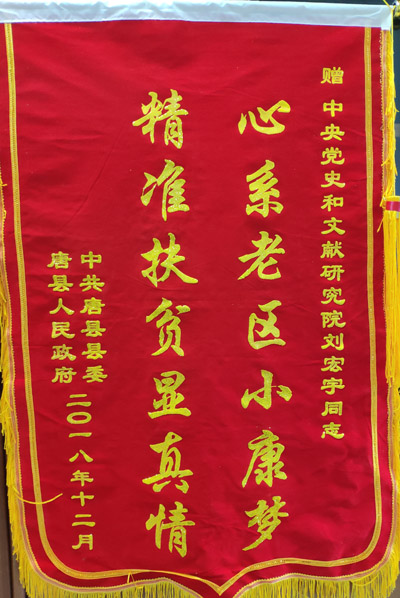 赠 中央党史和文献研究院刘宏宇同志
心系老区小康梦
精准扶贫显真情
中共唐县县委
唐县人民政府
二〇一八年十二月